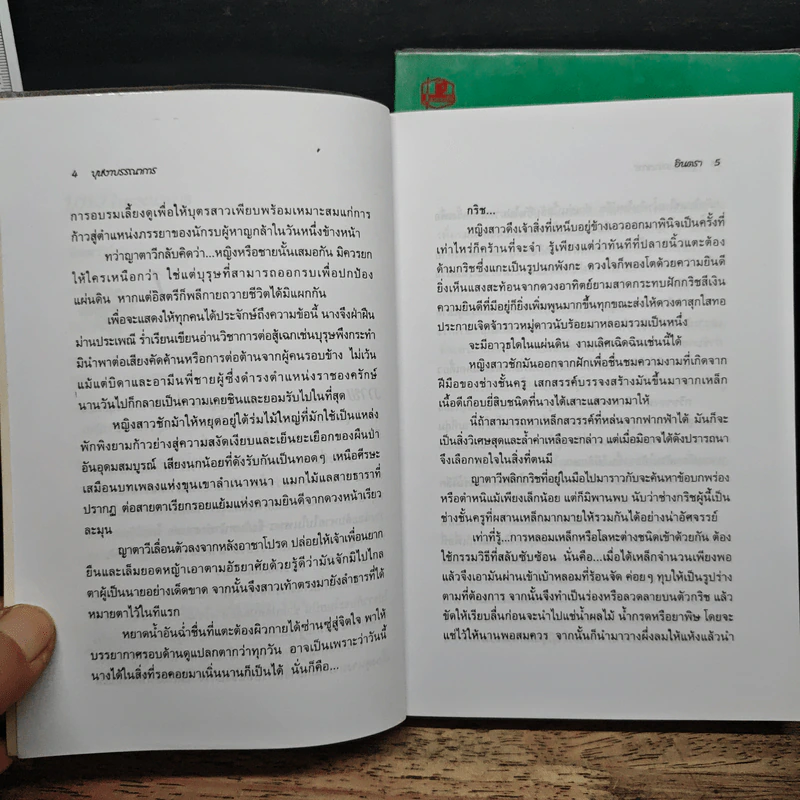 4 บุหงาบรรณาการ
การอบรมเลี้ยงดูเพื่อให้บุตรสาวเพียบพร้อมเหมาะสมแก่การ
ก้าวสู่ตำแหน่งภรรยาของนักรบผู้หาญกล้าในวันหนึ่งข้างหน้า
ทว่าญาตาวีกลับคิดว่า...หญิงหรือชายนั้นเสมอกัน มิควรยก
ให้ใครเหนือกว่า ใช่แต่บุรุษที่สามารถออกรบเพื่อปกป้อง
แผ่นดิน หากแต่อิสตรีก็พลีกายถวายชีวิตได้มิแผกกัน
เพื่อจะแสดงให้ทุกคนได้ประจักษ์ถึงความข้อนี้ นางจึงฝ่าฝืน
ม่านประเพณี ร่ำเรียนเขียนอ่านวิชาการต่อสู้เฉกเช่นบุรุษพึงกระทำ
มินำพาต่อเสียงคัดค้านหรือการต่อต้านจากผู้คนรอบข้าง ไม่เว้น
แม้แต่บิดาและอามีนพี่ชายผู้ซึ่งดำรงตำแหน่งราชองครักษ์
นานวันไปก็กลายเป็นความเคยชินและยอมรับไปในที่สุด
หญิงสาวชักม้าให้หยุดอยู่ใต้ร่มไม้ใหญ่ที่มักใช้เป็นแหล่ง
พักพิงยามก้าวย่างสู่ความสงัดเงียบและเย็นยะเยือกของผืนป่า
อันอุดมสมบูรณ์ เสียงนกน้อยที่ดังรับกันเป็นทอดๆ เหนือศีรษะ
เสมือนบทเพลงแห่งขุนเขาลำเนาพนา แมกไม้แลสายธาราที่
ปรากฏ ต่อสายตาเรียกรอยแย้มแห่งความยินดีจากดวงหน้าเรียว
ละมุน
ญาตาวีเลื่อนตัวลงจากหลังอาชาโปรด ปล่อยให้เจ้าเพื่อนยาก
ยืนและเล็มยอดหญ้าเอาตามอัธยาศัยด้วยรู้ดีว่ามันจักมิไปไกล
ตาผู้เป็นนายอย่างเด็ดขาด จากนั้นจึงสาวเท้าตรงมายังลำธารที่ได้
หมายตาไว้ในทีแรก
หยาดน้ำอันฉ่ำชื่นที่แตะต้องผิวกายได้ซ่านซู่สู่จิตใจ พาให้
บรรยากาศรอบด้านดูแปลกตากว่าทุกวัน อาจเป็นเพราะว่าวันนี้
นางได้ในสิ่งที่รอคอยมาเนิ่นนานก็เป็นได้ นั่นก็คือ...
อินตรา 5
กริช...
หญิงสาวดึงเจ้าสิ่งที่เหน็บอยู่ข้างเอวออกมาพินิจเป็นครั้งที่
เท่าไหร่ก็คร้านที่จะจำ รู้เพียงแต่ว่าทันทีที่ปลายนิ้วแตะต้อง
ด้ามกริชซึ่งแกะเป็นรูปนกพังกะ ดวงใจก็พองโตด้วยความยินดี
ยิ่งเห็นแสงสะท้อนจากดวงอาทิตย์ยามสาดกระทบฝักกริชสีเงิน
ความยินดีที่มีอยู่ก็ยิ่งเพิ่มพูนมากขึ้นทุกขณะส่งให้ดวงตาสุกใสทอ
ประกายเจิดจ้าราวหมู่ดาวนับร้อยมาหลอมรวมเป็นหนึ่ง
จะมีอาวุธใดในแผ่นดิน งามเลิศเฉิดฉินเช่นนี้ได้
หญิงสาวชักมันออกจากฝักเพื่อชื่นชมความงามที่เกิดจาก
ฝีมือของช่างชั้นครู เสกสรรค์บรรจงสร้างมันขึ้นมาจากเหล็ก
เนื้อดีเกือบยี่สิบชนิดที่นางได้เสาะแสวงหามาให้
นี่ถ้าสามารถหาเหล็กสวรรค์ที่หล่นจากฟากฟ้าได้ มันก็จะ
เป็นสิ่งวิเศษสุดและล้ำค่าเหลือจะกล่าว แต่เมื่อมิอาจได้ดังปรารถนา
จึงเลือกพอใจในสิ่งที่ตนมี
ญาตาวีพลิกกริชที่อยู่ในมือไปมาราวกับจะค้นหาข้อบกพร่อง
หรือตำหนิแม้เพียงเล็กน้อย แต่ก็มิพานพบ นับว่าช่างกริชผู้นี้เป็น
ช่างชั้นครูที่ผสานเหล็กมากมายให้รวมกันได้อย่างน่าอัศจรรย์
เท่าที่รู้...การหลอมเหล็กหรือโลหะต่างชนิดเข้าด้วยกัน ต้อง
ใช้กรรมวิธีที่สลับซับซ้อน นั่นคือ...เมื่อได้เหล็กจำนวนเพียงพอ
แล้วจึงเอามันผ่านเข้าเบ้าหลอมที่ร้อนจัด ค่อยๆ ทุบให้เป็นรูปร่าง
ตามที่ต้องการ จากนั้นจึงทำเป็นร่องหรือลวดลายบนตัวกริช แล้ว
ขัดให้เรียบลื่นก่อนจะนำไปแช่น้ำผลไม้ น้ำกรดหรือยาพิษ โดยจะ
แช่ไว้ให้นานพอสมควร จากนั้นก็นำมาวางผึ่งลมให้แห้งแล้วนำ